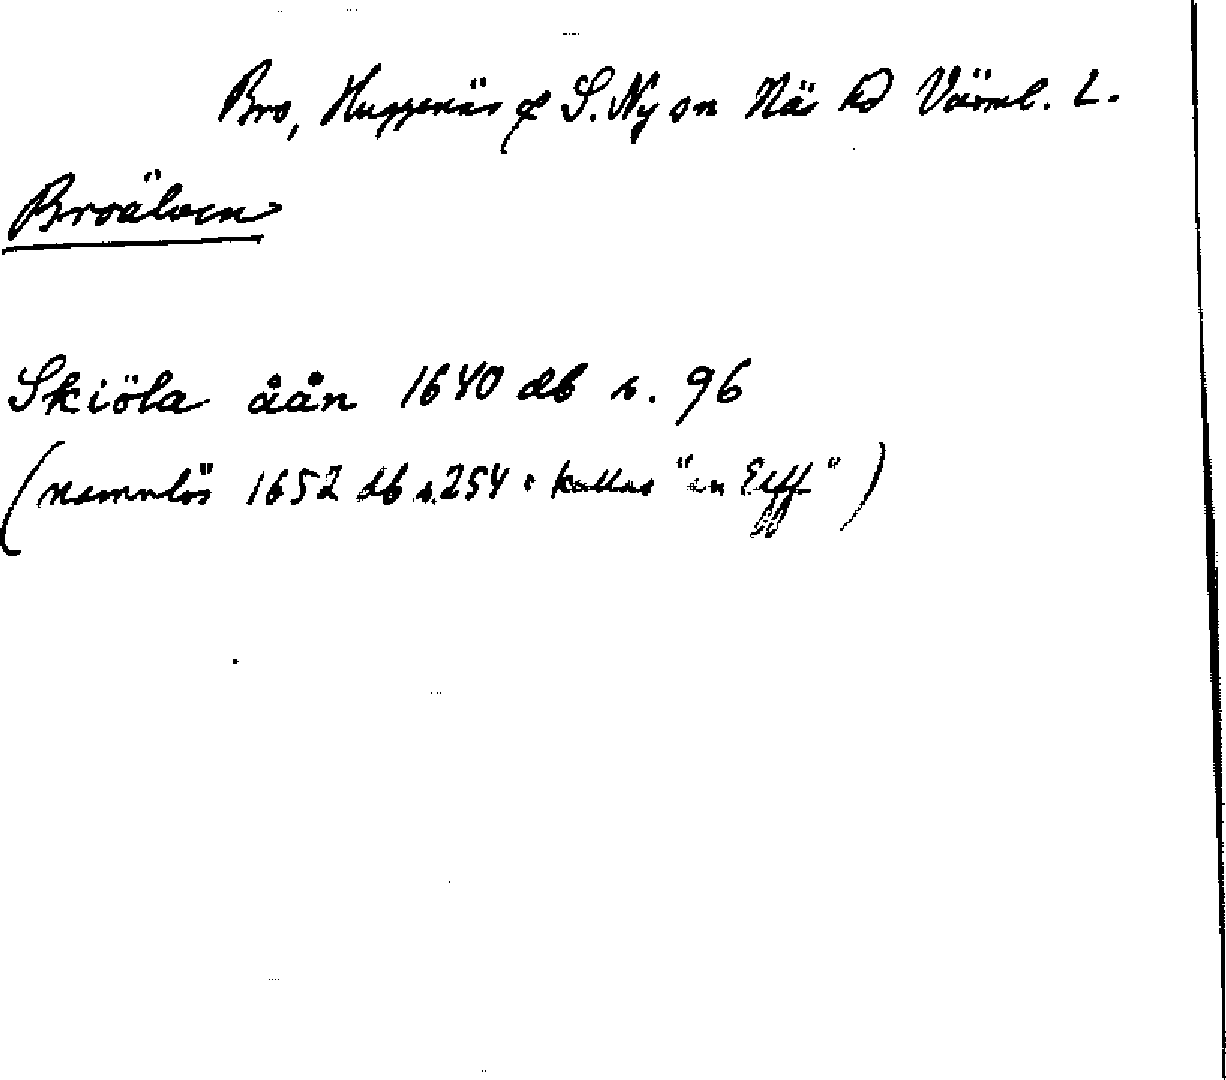 Bro, Huggenäs o S. Ny sn Nä hd Värml. L.
Broälven
Skiöla åån 1640 db s. 96
(namnlös 1652 db s. 254 · kallas "en Elff")